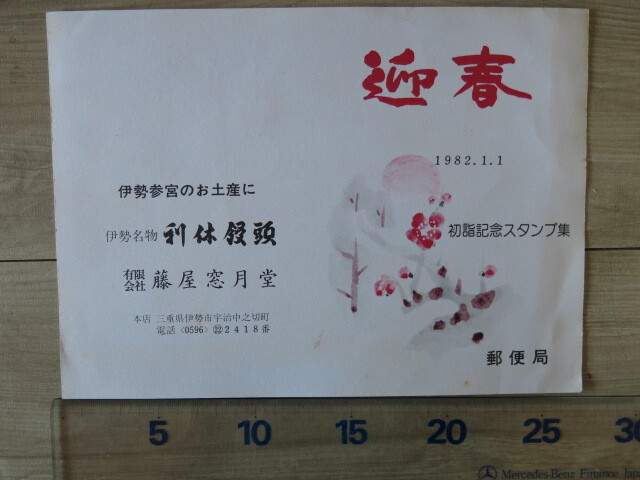 迎春
1982.1.1
初詣記念スタンプ集
郵便局
伊勢参宮のお土産に
伊勢名物 利休饅頭
有限会社 藤屋窓月堂
本店 三重県伊勢市宇治中之切町
電話〈0596〉㉒2418番
5 10 15 20 25 30
Mercedes-Benz Finance Japa